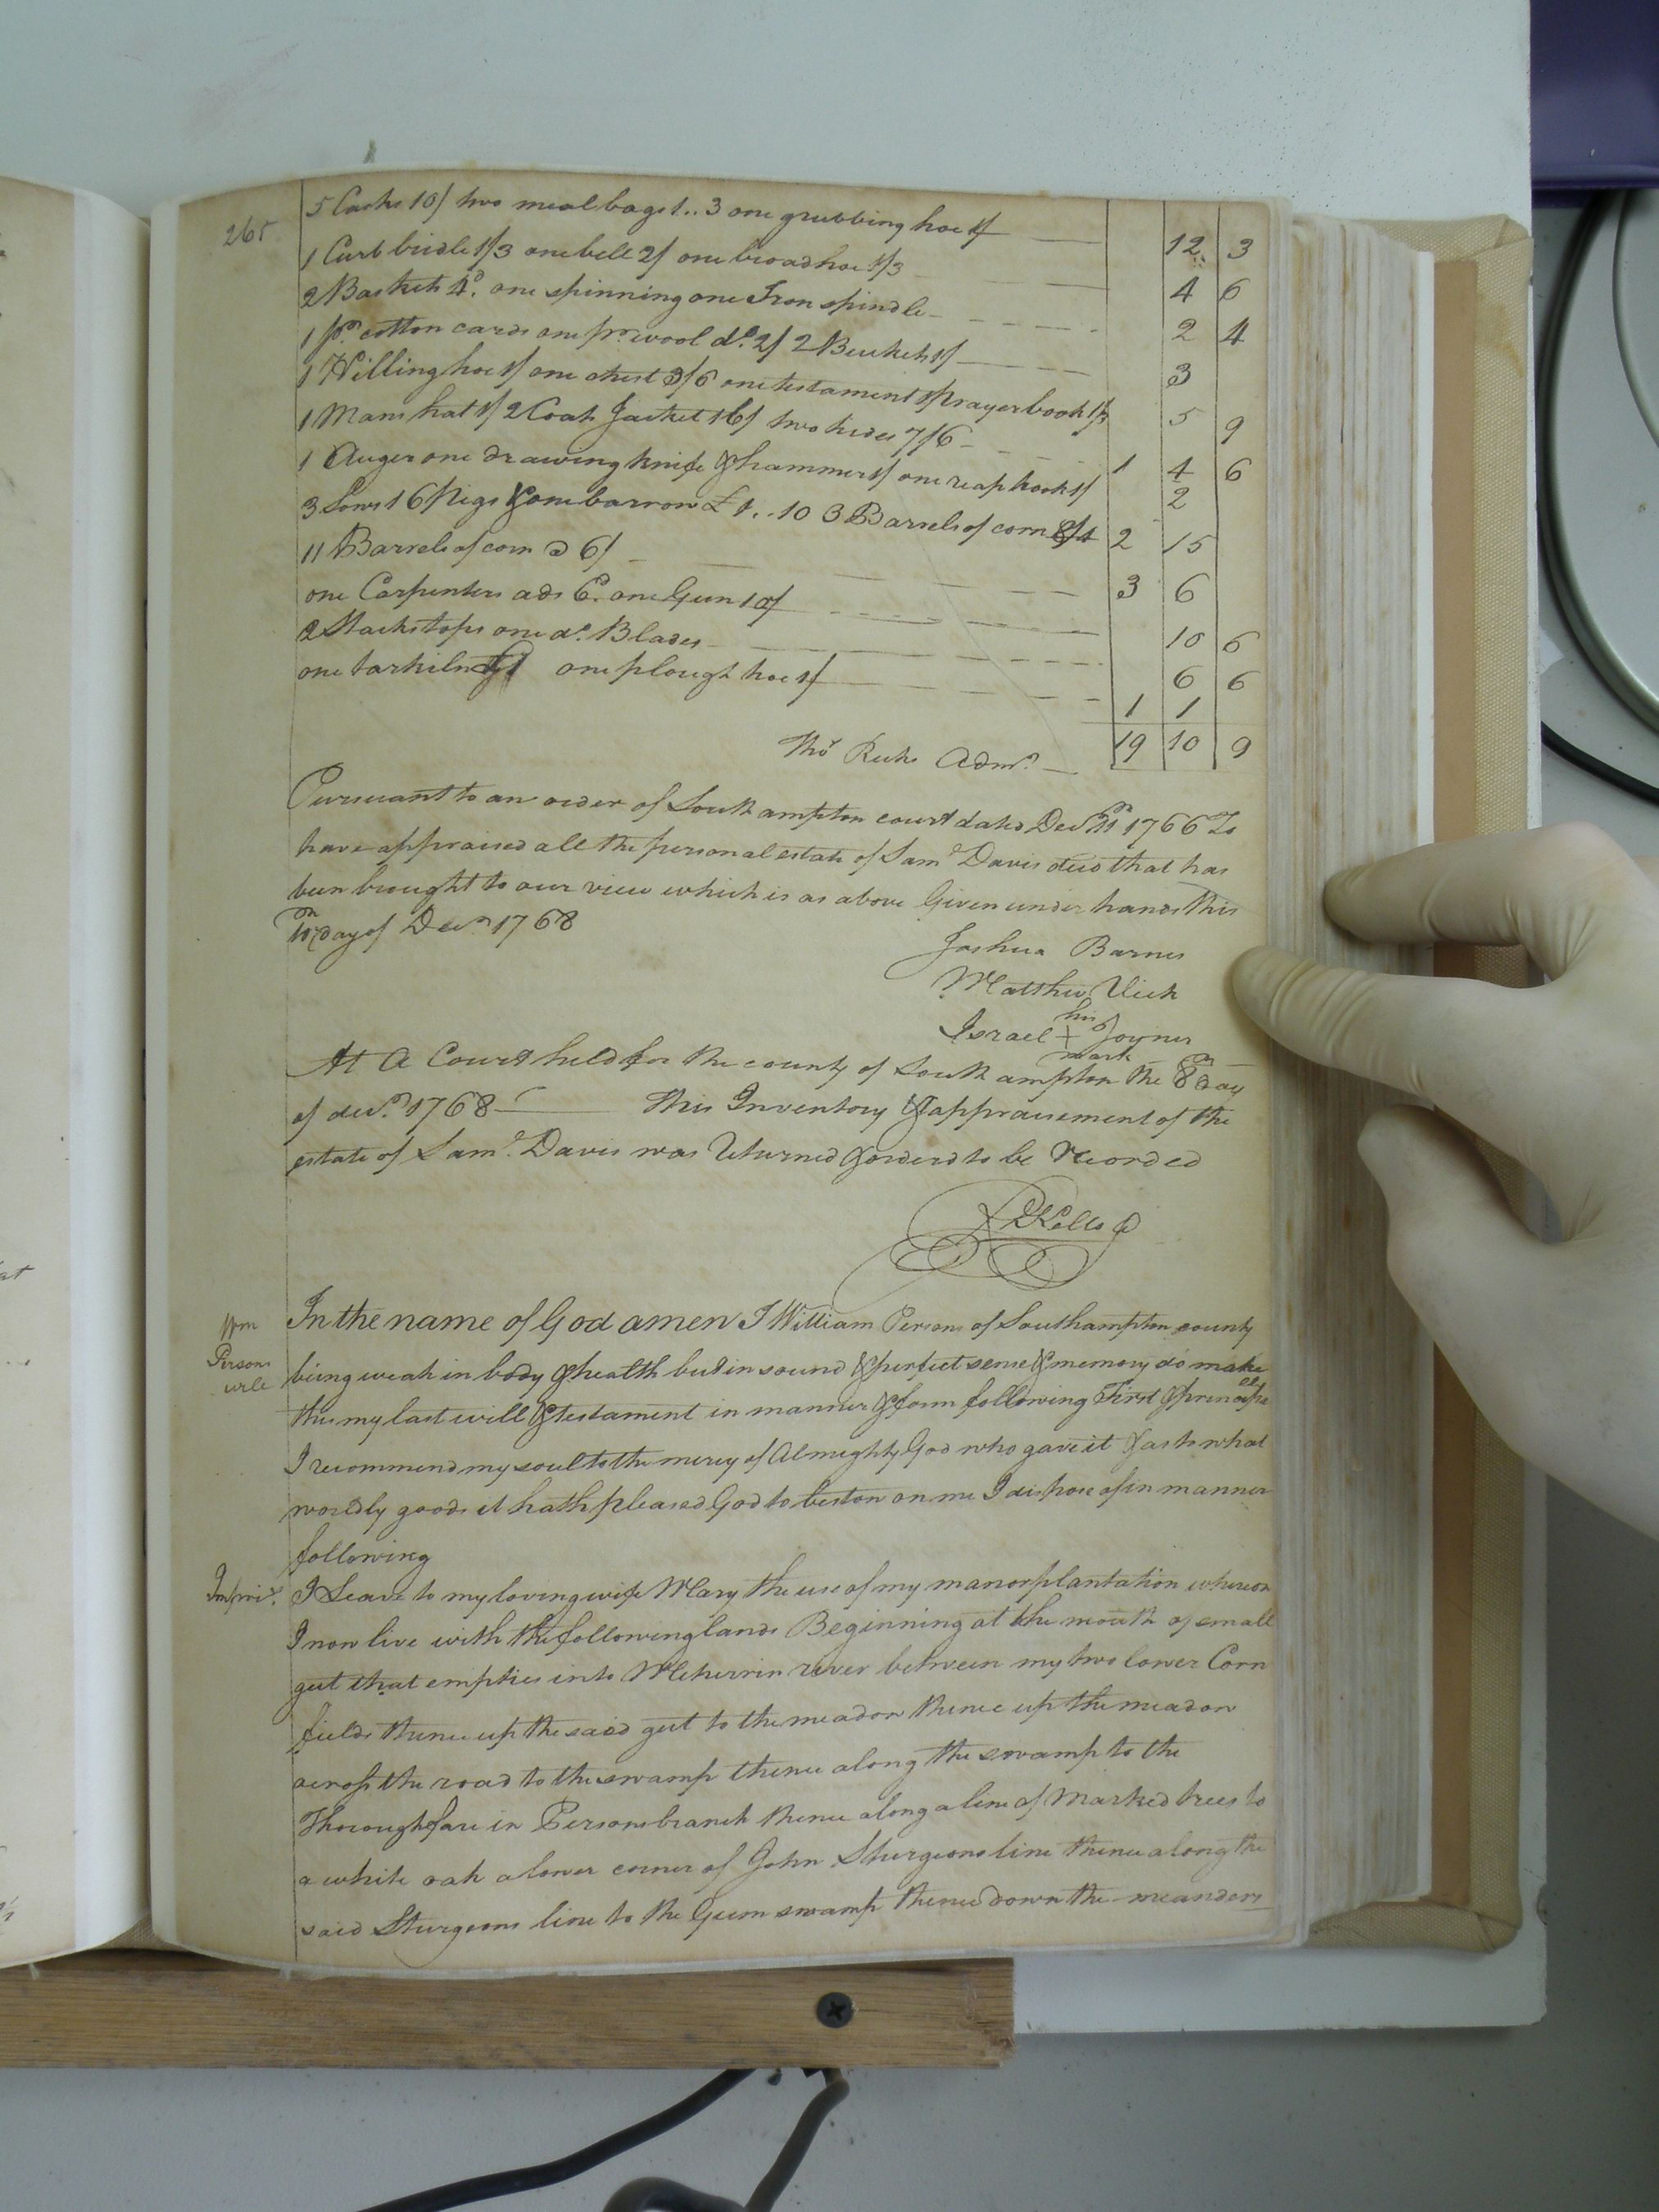 265
5 Casks 10/ two meal bags 1..3 one grubbing hoe 1/ 12 3
1 Curb bridle 1/3 one bell 2/ one broad hoe 1/3 4 6
2 Baskets 4d. one spinning one Iron spindle 2 4
1 pr. cotton cards one pr. wool do. 2/ 2 Buckets 1/ 3
1 Hilling hoe 1/ one chest 3/6 one testament 1/ prayer book 1/3 5 9
1 Mans hat 1/ 2 Coats Jacket 16/ two hides 7/6 1 4 6
1 Auger one drawing knife & hammer 1/ one reap hook 1/ 2
3 Sows 16 Pigs & one barrow £1..10 3 Barrels of corn 2 15
11 Barrels of corn @ 6/ 3 6
one Carpenters ads 6d. one Gun 10/ 10 6
2 Stacks tops one do. Blades 6 6
one tarkiln one plough hoe 1/ 1 1
Thos Ricks Admr. 19 10 9
Pursuant to an order of Southampton court dated Decr. 1766 To
have appraised all the personal estate of Saml Davis decd that has
been brought to our view which is as above Given under hands this
10th day of Decr. 1768
Joshua Barnes
Matthew Vick
his
Israel + Joyner
mark
At A Court held for the county of Southampton the 8th day
of decr. 1768 This Inventory & appraisement of the
estate of Saml. Davis was Returned & orderd to be Recorded
R Kello
Wm
Persons
In the name of God amen I William Persons of Southampton county
being weak in body & health but in sound & perfect sense & memory do make
this my last will & testament in manner & form following First & principally
I recommend my soul to the mercy of Almighty God who gave it & as to what
worldly goods it hath pleased God to bestow on me I dispose of in manner
following
Impris. I Leave to my loving wife Mary the use of my manor plantation whereon
I now live with the following lands Beginning at the mouth of small
gut that empties into Meherrin river between my two lower Corn
fields thence up the said gut to the meadow thence up the meadow
across the road to the swamp thence along the swamp to the
Thoroughfare in Persons branch thence along a line of Marked trees to
a white oak a lower corner of John Sturgeons line thence along the
said Sturgeons line to the Gum swamp thence down the meanders